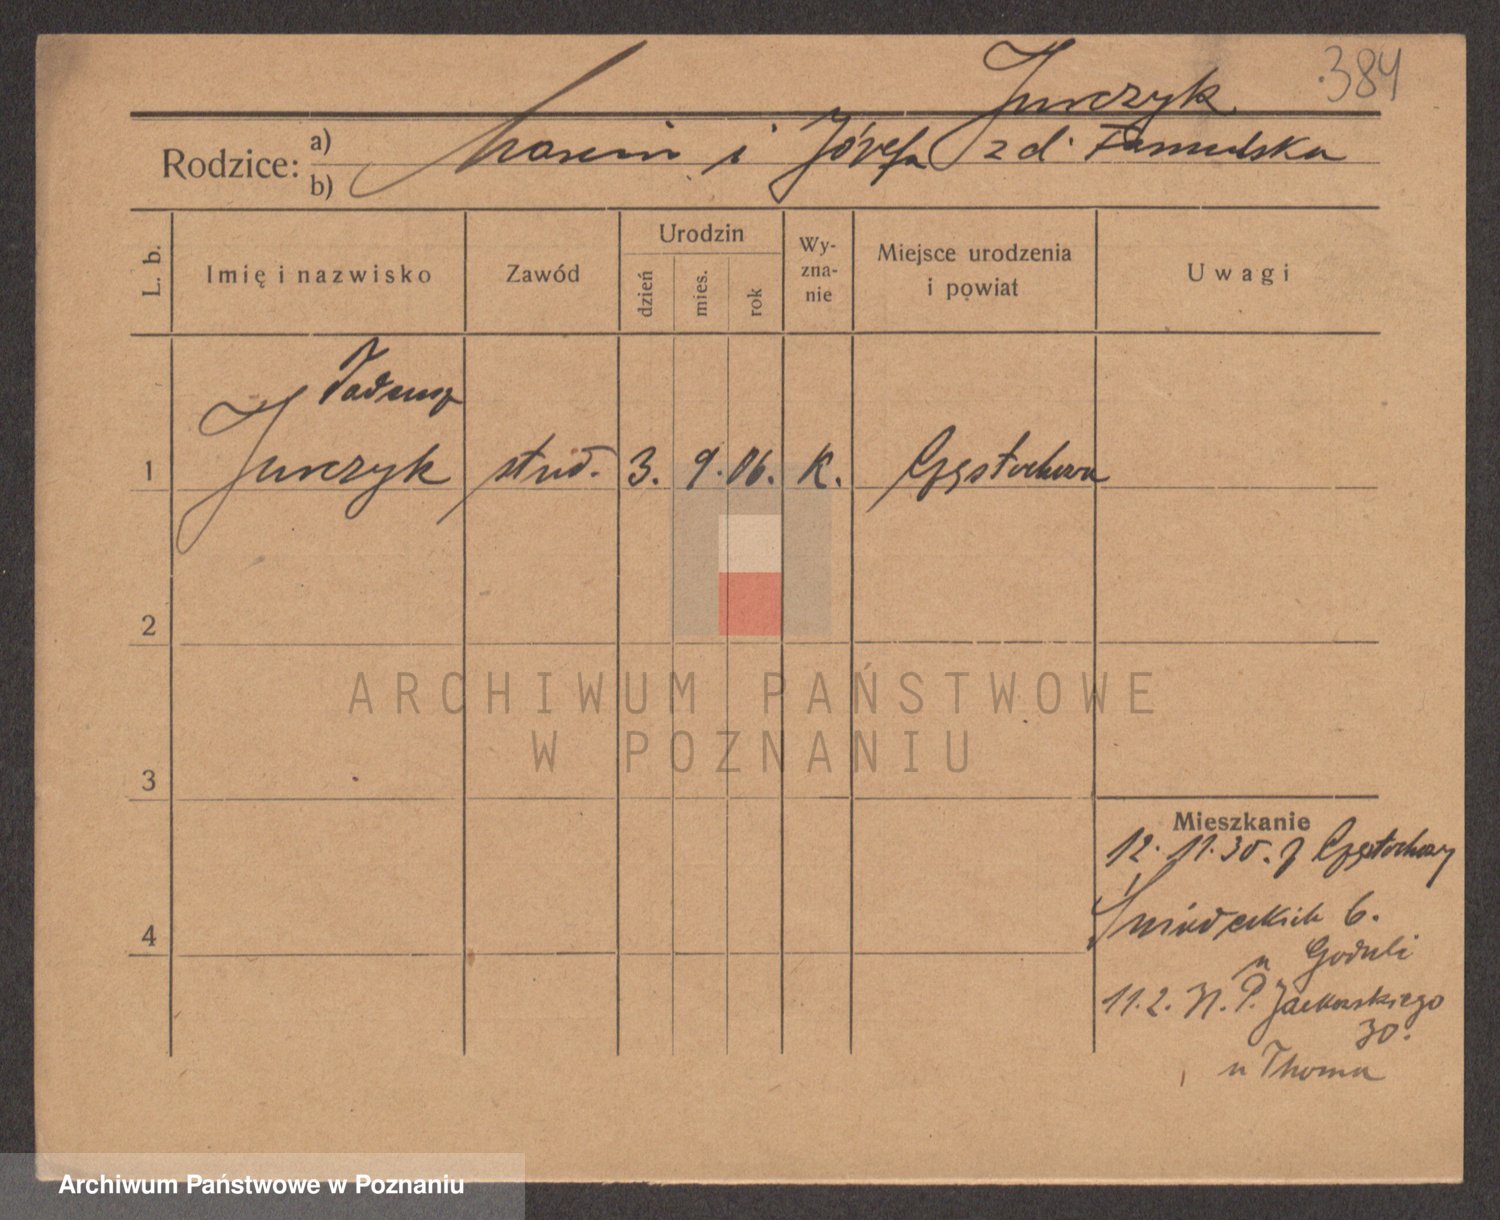 384
Jurczyk.
Rodzice: a) Marcin i Józefa z d. Famulska
b)
L. b.
Imię i nazwisko
Zawód
Urodzin
dzień
mies.
rok
Wy-
zna-
nie
Miejsce urodzenia
i powiat
Uwagi
Tadeusz
1 Jurczyk stud. 3. 9. 06. K. Częstochowa
2
3
4
ARCHIWUM PAŃSTWOWE
W POZNANIU
Mieszkanie
12. 11. 30. z Częstochowy
Śniadeckich 6.
u Goduli
11. 2. 31. P. Jackowskiego
30.
u Thoma
Archiwum Państwowe w Poznaniu